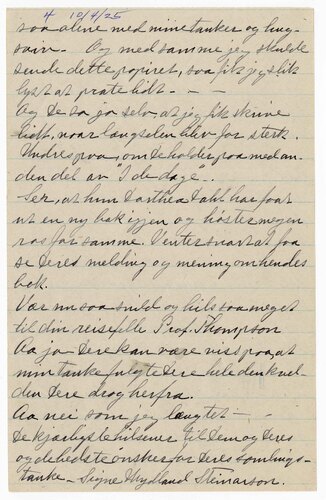 4 10/4/25
saa alene med mine tanker og hug-
savn. Og med samme jeg skulde
sende dette papiret, saa fik jeg slik
lyst at prate lidt - - -
Og De sa jo selv, at jeg fik skrive
lidt, naar langselen blev for sterk.
Undres paa, om De holder paa med an-
den del av "I de dage"..
Ser, at hun Dorthea Dahl har faat
ut en ny bok igjen og høster megen
ros for samme. Venter snart at faa
se Deres melding og mening om hendes
bok.
Vær nu saa snild og hils saa meget
til din reisefelle Prof. Thompson
Aa ja Dere kan være viss paa, at
min tanke fulgte Dere hele den kvel-
den Dere drog herfra.
Aa nei som jeg længtet - -
De kjærligste hilsener til Dem og Deres
og de bedste ønsker for Deres samlings-
tanke. Signe Mydland Steinarson.